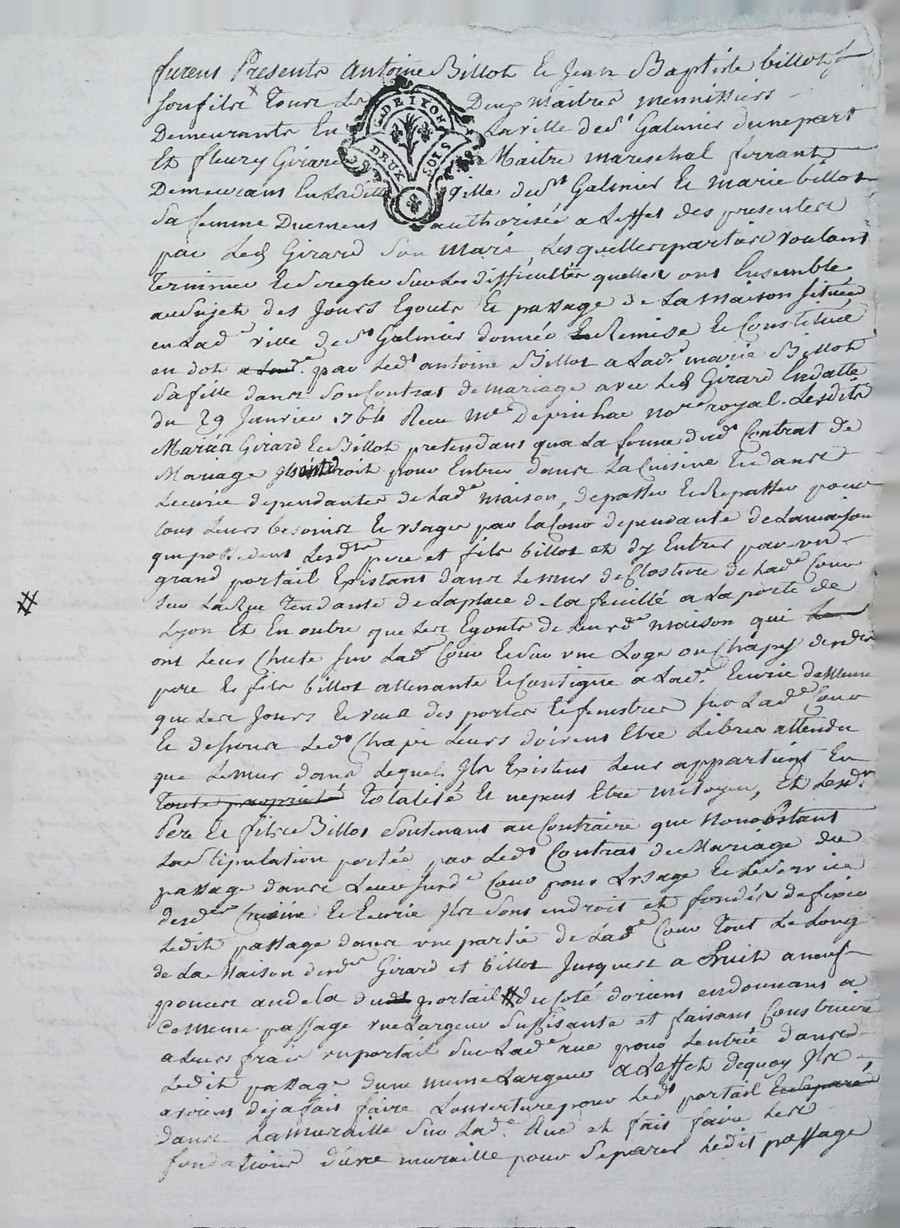 furent Presents Antoine Billot et Jean Baptiste billot
son fils Tous Les Deux Maitres mennissiers
DE LYON
DEUX SOLS
Demeurants En La ville de St Galmier dunepart
Et fleury Girard Maitre mareschal ferrant
Demeurant En Ladite ville de St Galmier Et marie billot
Sa femme Duement authorisée a Leffet des presentes
par Led Girard Son Mari, Lesquelles parties voulant
Terminer Et regler Les difficultés quelles ont Ensemble
ausujet des Jours Egouts Et passage de La maison Située
en Lade ville de St Galmier donnée En Remise Et Constitué
en dot a Lade. par Ledt antoine Billot a Lade marie Billot
Safille dans Son Contrat de mariage avec Led Girard Endatte
du 29 Janvier 1764 Recu Me Depinhac nore royal. Lesdits
Mariés Girard Et Billot pretendans qua La forme dudt Contrat de
Mariage Ils droit pour Entrer dans La Cuisine Et dans
Lecurie dependantes de Lade maison, de passer Et Repasser pour
tous Leurs besoins Et usages par la Cour dependante de Lamaison
que possedent Lesdts pere et fils billot et dy Entrer par un
grand portail Existant dans Le mur de Closture de Lade Cour
Sur La Rue Tendante de Laplace de la feuillé a La porte de
#
Lyon Et En outre que Les Egouts de Leurde maison qui Le
ont Leur Chute sur Lade Cour Et sur une Loge ou Chapy desdts
pere Et fils billot attenante Et Contigue a Lade. Ecurie de Meme
que Les Jours Et vues des portes Et fenestres sur Lade Cour
Et dessous Ledt Chapi Leurs doivent Etre Libres attendu
que Le mur dans Lequel Ils Existent Leur appartient En
toute proprieté Totalité Et nepeut Etre mitoyen, Et Lesdts
Pere Et fils Billot Soutenant au Contraire que Nonobstant
La Stipulation portée par Ledt Contrat de Mariage du
passage dans Leur Surde Cour pour Lusage Et Le Service
desdes Cuisine Et Ecurie Ils Sont endroit et fondés de fixer
Ledit passage dans une partie de Lade Cour Tout Le Long
de La Maison desdts Girard et billot Jusques a huit a neuf
pouces audela dudt portail # du Coté dorient endonnant a
Ce meme passage une Largeur Suffisante et faisant Construire
a Leurs frais un portail Sur Lade rue pour Lentrée dans
Ledit passage dune meme Largeur a Leffet dequoy Ils
avoient dejafait faire Louverture pour Ledt portail Et separé
dans La muraille Sur Lade. Rue et fait faire Les
fondations dune muraille pour Separer Ledit passage